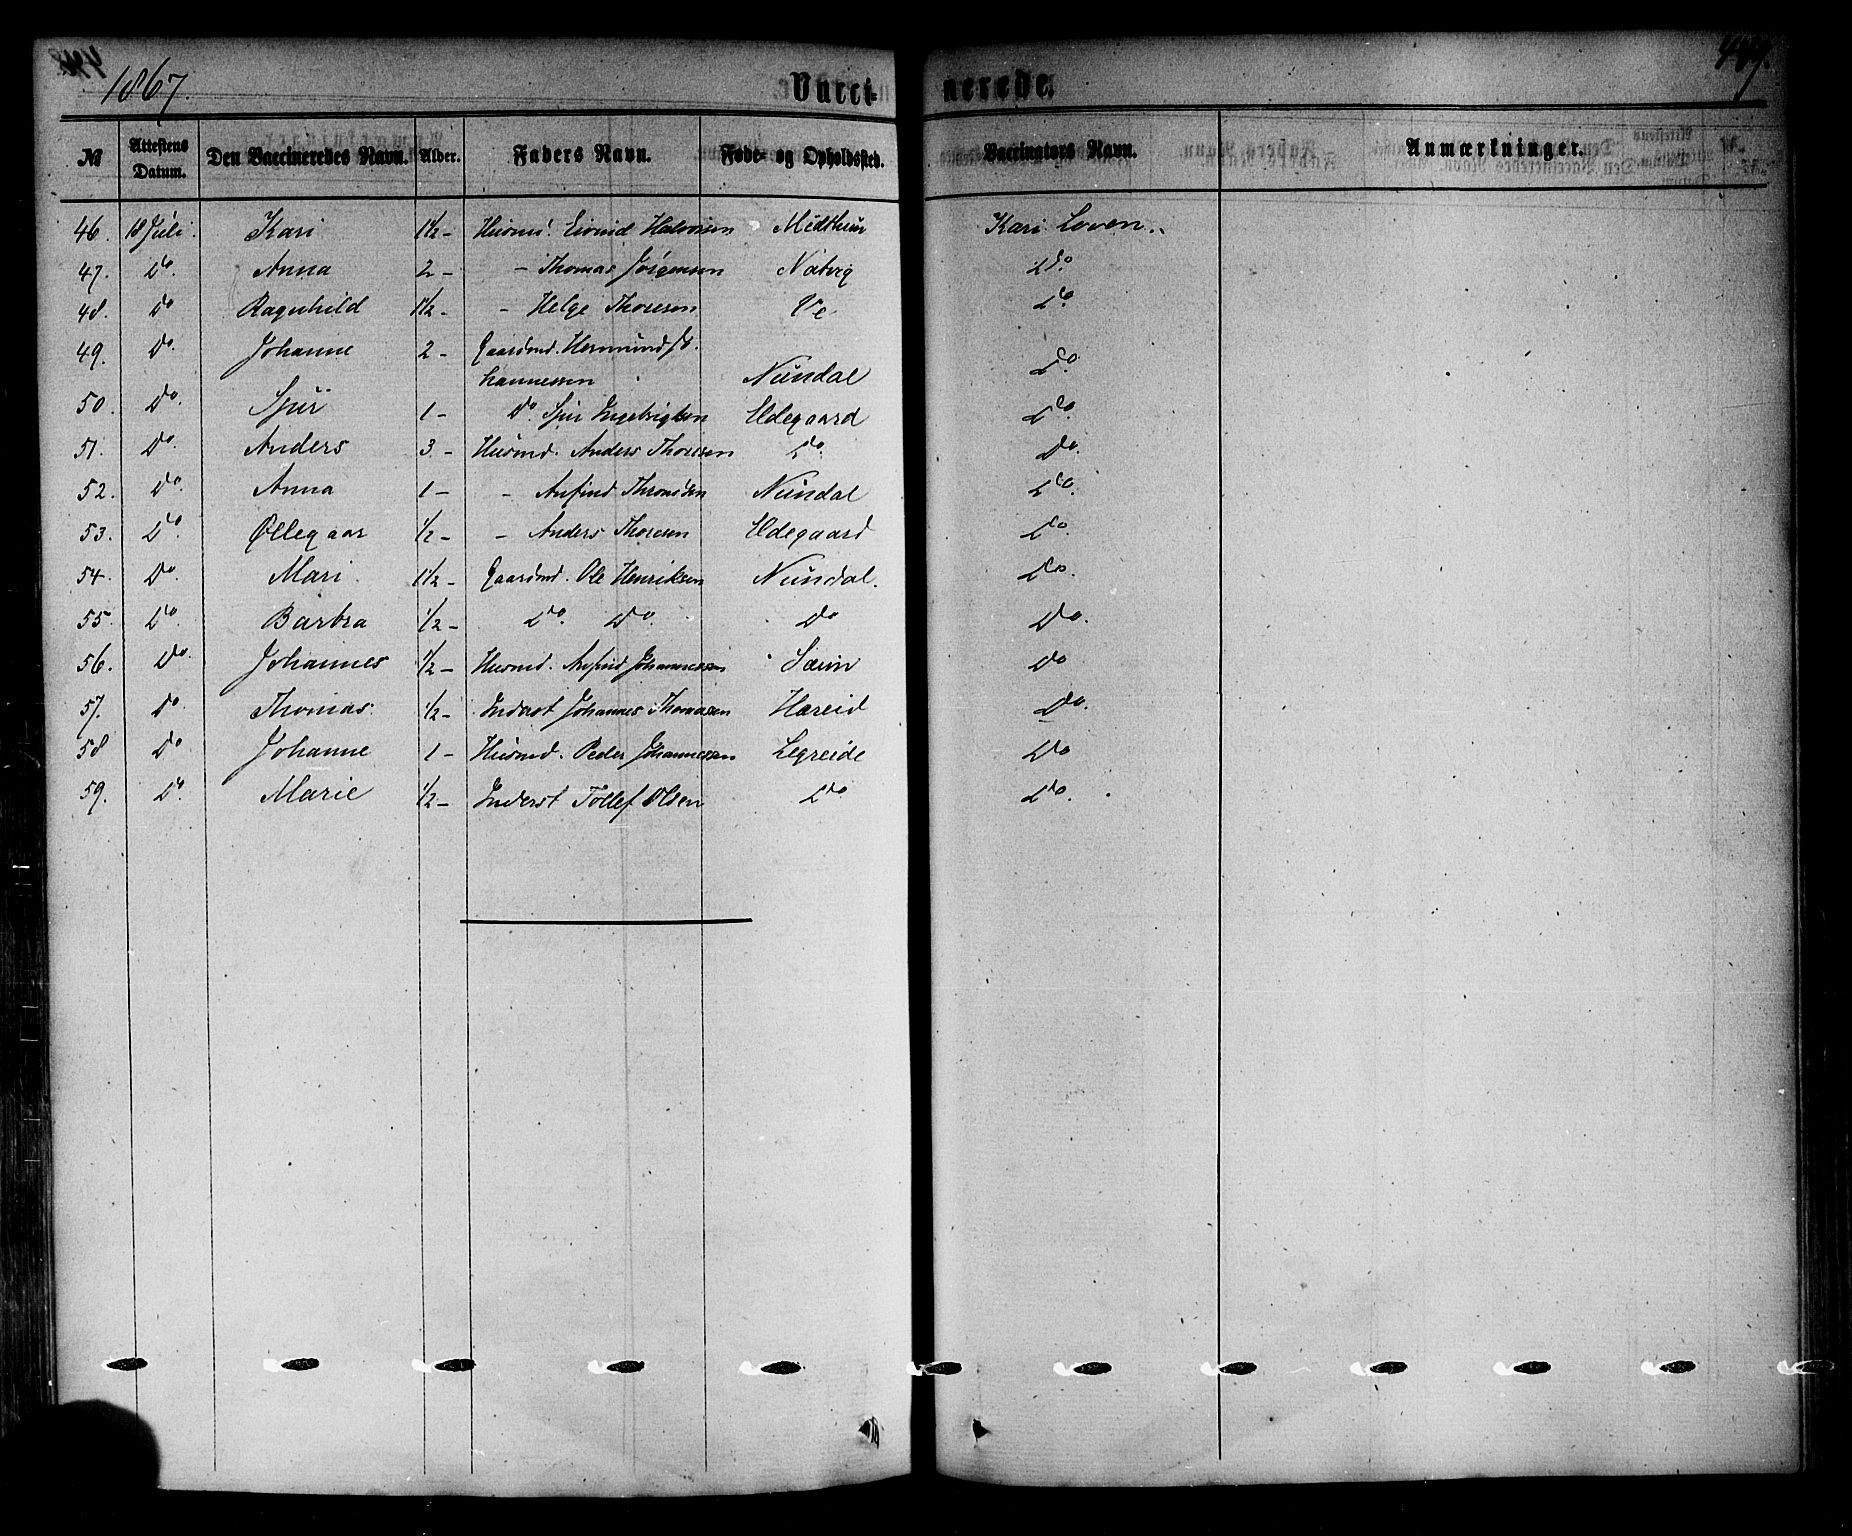 1867.
Vacci- nerede.
449.
№ Attestens Datum. Den Vaccineredes Navn. Alder. Faders Navn. Føde- og Opholdssted. Vaccinators Navn. Anmærkninger.
46. 18 Juli. Kari 1 1/2 - Husmd. Eivind Halvorsen Midthun Kari Loven.
47. Do. Anna 2 - - Thomas Jørgensen Naberg Do.
48. Do Ragnhild 1 1/2 - - Helge Thoresen Ve Do.
49. Do. Johanne 2 - Gaardmd. Hermund Jo-
hannessen Nundal Do.
50. Do. Sjur 1 - Do. Sjur Engebrigtsen Uldegaard Do.
51. Do. Anders 3. - Husmd. Anders Thoresen Do. Do.
52. Do. Anna 1 - - Anfind Thronsen Nundal Do.
53. Do. Øllegaar 1/2 - - Anders Thoresen Uldegaard Do.
54. Do. Mari 1 1/2 - Gaardmd. Ole Henriksen Nundal. Do.
55. Do. Barbra 1/2 - Do. Do. Do Do.
56. Do. Johannes 1/2 - Husmd. Anfind Johannessen Søum Do
57. Do Thomas. 1/2 - Inderst Johannes Thomasen Hæreid Do.
58 Do Johanne 1 - Husmd. Peder Johannessen Legreide Do
59. Do. Marie 1/2 - Inderst Tollef Olsen Do Do.